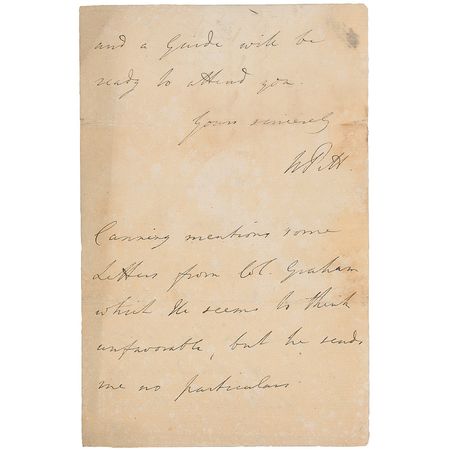 and a Guide will be
ready to attend you.
Yours sincerely
W Pitt.
Canning mentions some
Letters from Col. Graham
which He seems to think
unfavorable, but he sends
me no particulars.